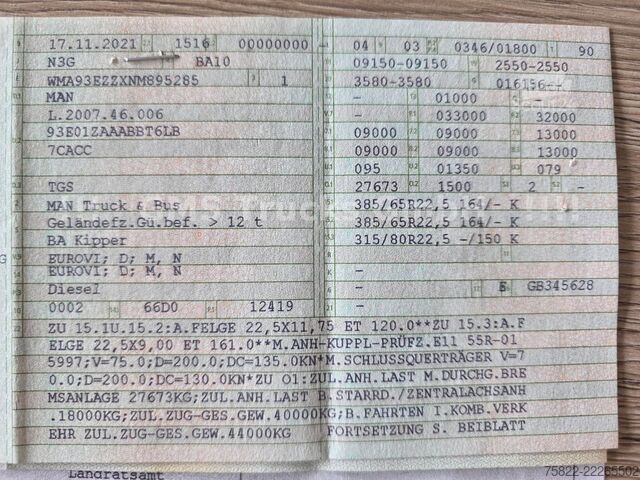 17.11.2021 1516 00000000
N3G BA10
WMA93EZZXNM895285 1
MAN
L.2007.46.006
93E01ZAAABBT6LB
7CACC
TGS
MAN Truck & Bus
Geländefz.Gü.bef. > 12 t
BA Kipper
EUROVI; D; M, N
EUROVI; D; M, N
Diesel
0002 66D0 12419
04 03 0346/01800 90
09150-09150 2550-2550
3580-3580
- 01000 -
- 033000 32000
09000 09000 13000
09000 09000 13000
095 01350 079
27673 1500 2 -
385/65R22,5 164/- K
385/65R22,5 164/- K
315/80R22,5 -/150 K
-
-
- E GB345628
-
ZU 15.1U.15.2:A.FELGE 22,5X11,75 ET 120.0**ZU 15.3:A.F
ELGE 22,5X9,00 ET 161.0**M.ANH-KUPPL-PRÜFZ.E11 55R-01
5997;V=75.0;D=200.0;DC=135.0KN*M.SCHLUSSQUERTRÄGER V=7
0.0;D=200.0;DC=130.0KN*ZU O1:ZUL.ANH.LAST M.DURCHG.BRE
MSANLAGE 27673KG;ZUL.ANH.LAST B.STARRD./ZENTRALACHSANH
.18000KG;ZUL.ZUG-GES.GEW.40000KG;B.FAHRTEN I.KOMB.VERK
EHR ZUL.ZUG-GES.GEW.44000KG FORTSETZUNG S. BEIBLATT
Landratsamt
75822-22285502